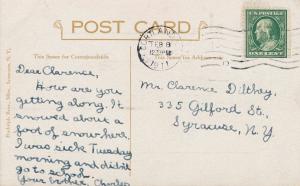 POST CARD
This Space for Correspondence
This Space for Address
CORTLAND
FEB 8
1911
U.S. POSTAGE
ONE CENT
Dear Clarence,
How are you
getting along. It
snowed about a
foot of snow here.
I was sick Tuesday
morning and didn't
go to school.
Your brother, Charles
Mr. Clarence Dilthey,
335 Gilford St.,
Syracuse, N.Y.